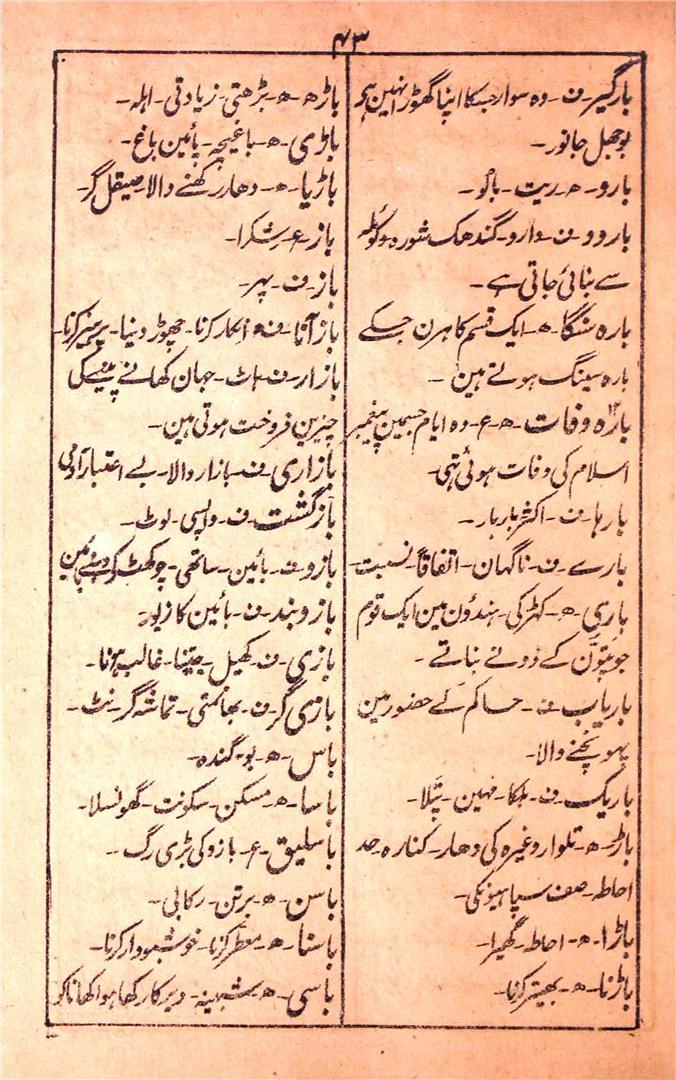 ۴۳
بارگیر۔ف۔ وہ سوار جسکا اپنا گھوڑا نہین ہو
بوجھل جانور۔
بارو۔ھ۔ ریت۔ بالو۔
بارود۔ف۔ دارو۔ گندھک شورہ و کوئلہ
سے بنائی جاتی ہے۔
بارہ سنگا۔ھ۔ ایک قسم کا ہرن جسکے
بارہ سینگ ہوتے ہین۔
بارہ وفات۔ھ۔ع۔ وہ ایام جسمین پیغمبر
اسلام کی وفات ہوئی تہی۔
بارہا۔ف۔ اکثر بار بار۔
بارے۔ف۔ ناگہان۔ اتفاقاً۔ نسبت۔
باری۔ھ۔ کہڑکی۔ ہندؤن مین ایک قوم
جو پتون کے دونے بناتے۔
باریاب۔ف۔ حاکم کے حضور مین
پہونچنے والا۔
باریک۔ف۔ ہلکا۔ مہین۔ پتلا۔
باڑ۔ھ۔ تلوار وغیرہ کی دھار۔ کنارہ حد
احاطہ۔ صف سپاہیونکی۔
باڑا۔ھ۔ احاطہ۔ گھیرا۔
باڑنا۔ھ۔ بھیتر کرنا۔
باڑھ۔ھ۔ بڑھتی۔ زیادتی۔
باڑی۔ھ۔ باغیچہ۔ پائین باغ۔
باڑیا۔ھ۔ دھار رکھنے والا۔ صیقل گر۔
باز۔ع۔ شکرا۔
باز۔ف۔ پہر۔
باز آنا۔ف ھ۔ انکار کرنا۔ چھوڑ دینا۔ پرہیز کرنا۔
بازار۔ف۔ ہاٹ۔ جہان کھانے پینے کی
چیزین فروخت ہوتی ہین۔
بازاری۔ف۔ بازار والا۔ بے اعتبار آدمی
بازگشت۔ف۔ واپسی۔ لوٹ۔
بازو۔ف۔ بائین۔ ساتھی۔ چوکھٹ کے
بازوبند۔ف۔ بائین کا زیور۔
بازی۔ف۔ کھیل۔ جیتنا۔ غالب ہونا۔
بازی گر۔ف۔ بھانمتی۔ تماشہ گر۔ نٹ۔
باس۔ھ۔ بو۔ گندہ۔
باسا۔ھ۔ مسکن۔ سکونت۔ گھونسلا۔
باسلیق۔ع۔ بازو کی بڑی رگ۔
باسن۔ھ۔ برتن۔ رکابی۔
باسنا۔ھ۔ معطر کرنا۔ خوشبودار کرنا۔
باسی۔ھ۔ شبینہ۔ دیر کا رکھا ہوا کھانا